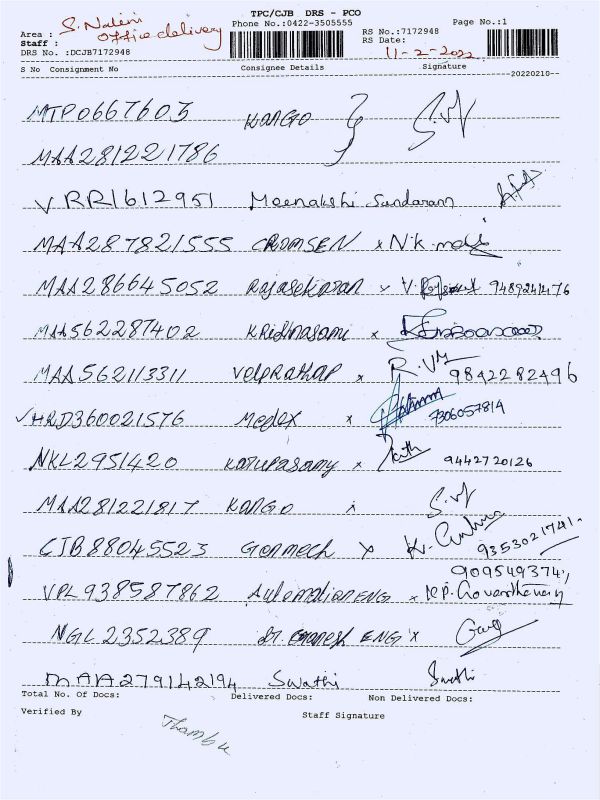 TPC/CJB DRS - PCO
Phone No.:0422-3505555
Page No.:1
Area : S. Nalini
Office delivery
Staff :
DRS No. :DCJB7172948
RS No.:7172948
RS Date:
11-2-2022
S No Consignment No Consignee Details Signature
20220210
MTP0667603 KANGO
MAA281221786
VRR1612951 Meenakshi Sundaram
MAA287821555 CROMSEN x N.K.
MAA286645052 Rajasekaran x V. 9489241476
MAA562287402 Kridhnasami x
MAA562113311 Velprathap x R. 9842282496
HRD360021576 Medex x 7306057814
NKL2951420 Karupasamy x 9442720126
MAA281221817 KANGO x
CJB88045523 Gormech x K. 9353021741
9095493741
VPL938587862 Automation ENG x
NGL2352389 ENG x
MAA279142194 Swathi Swathi
Total No. Of Docs: Delivered Docs: Non Delivered Docs:
Verified By Staff Signature
Thambu